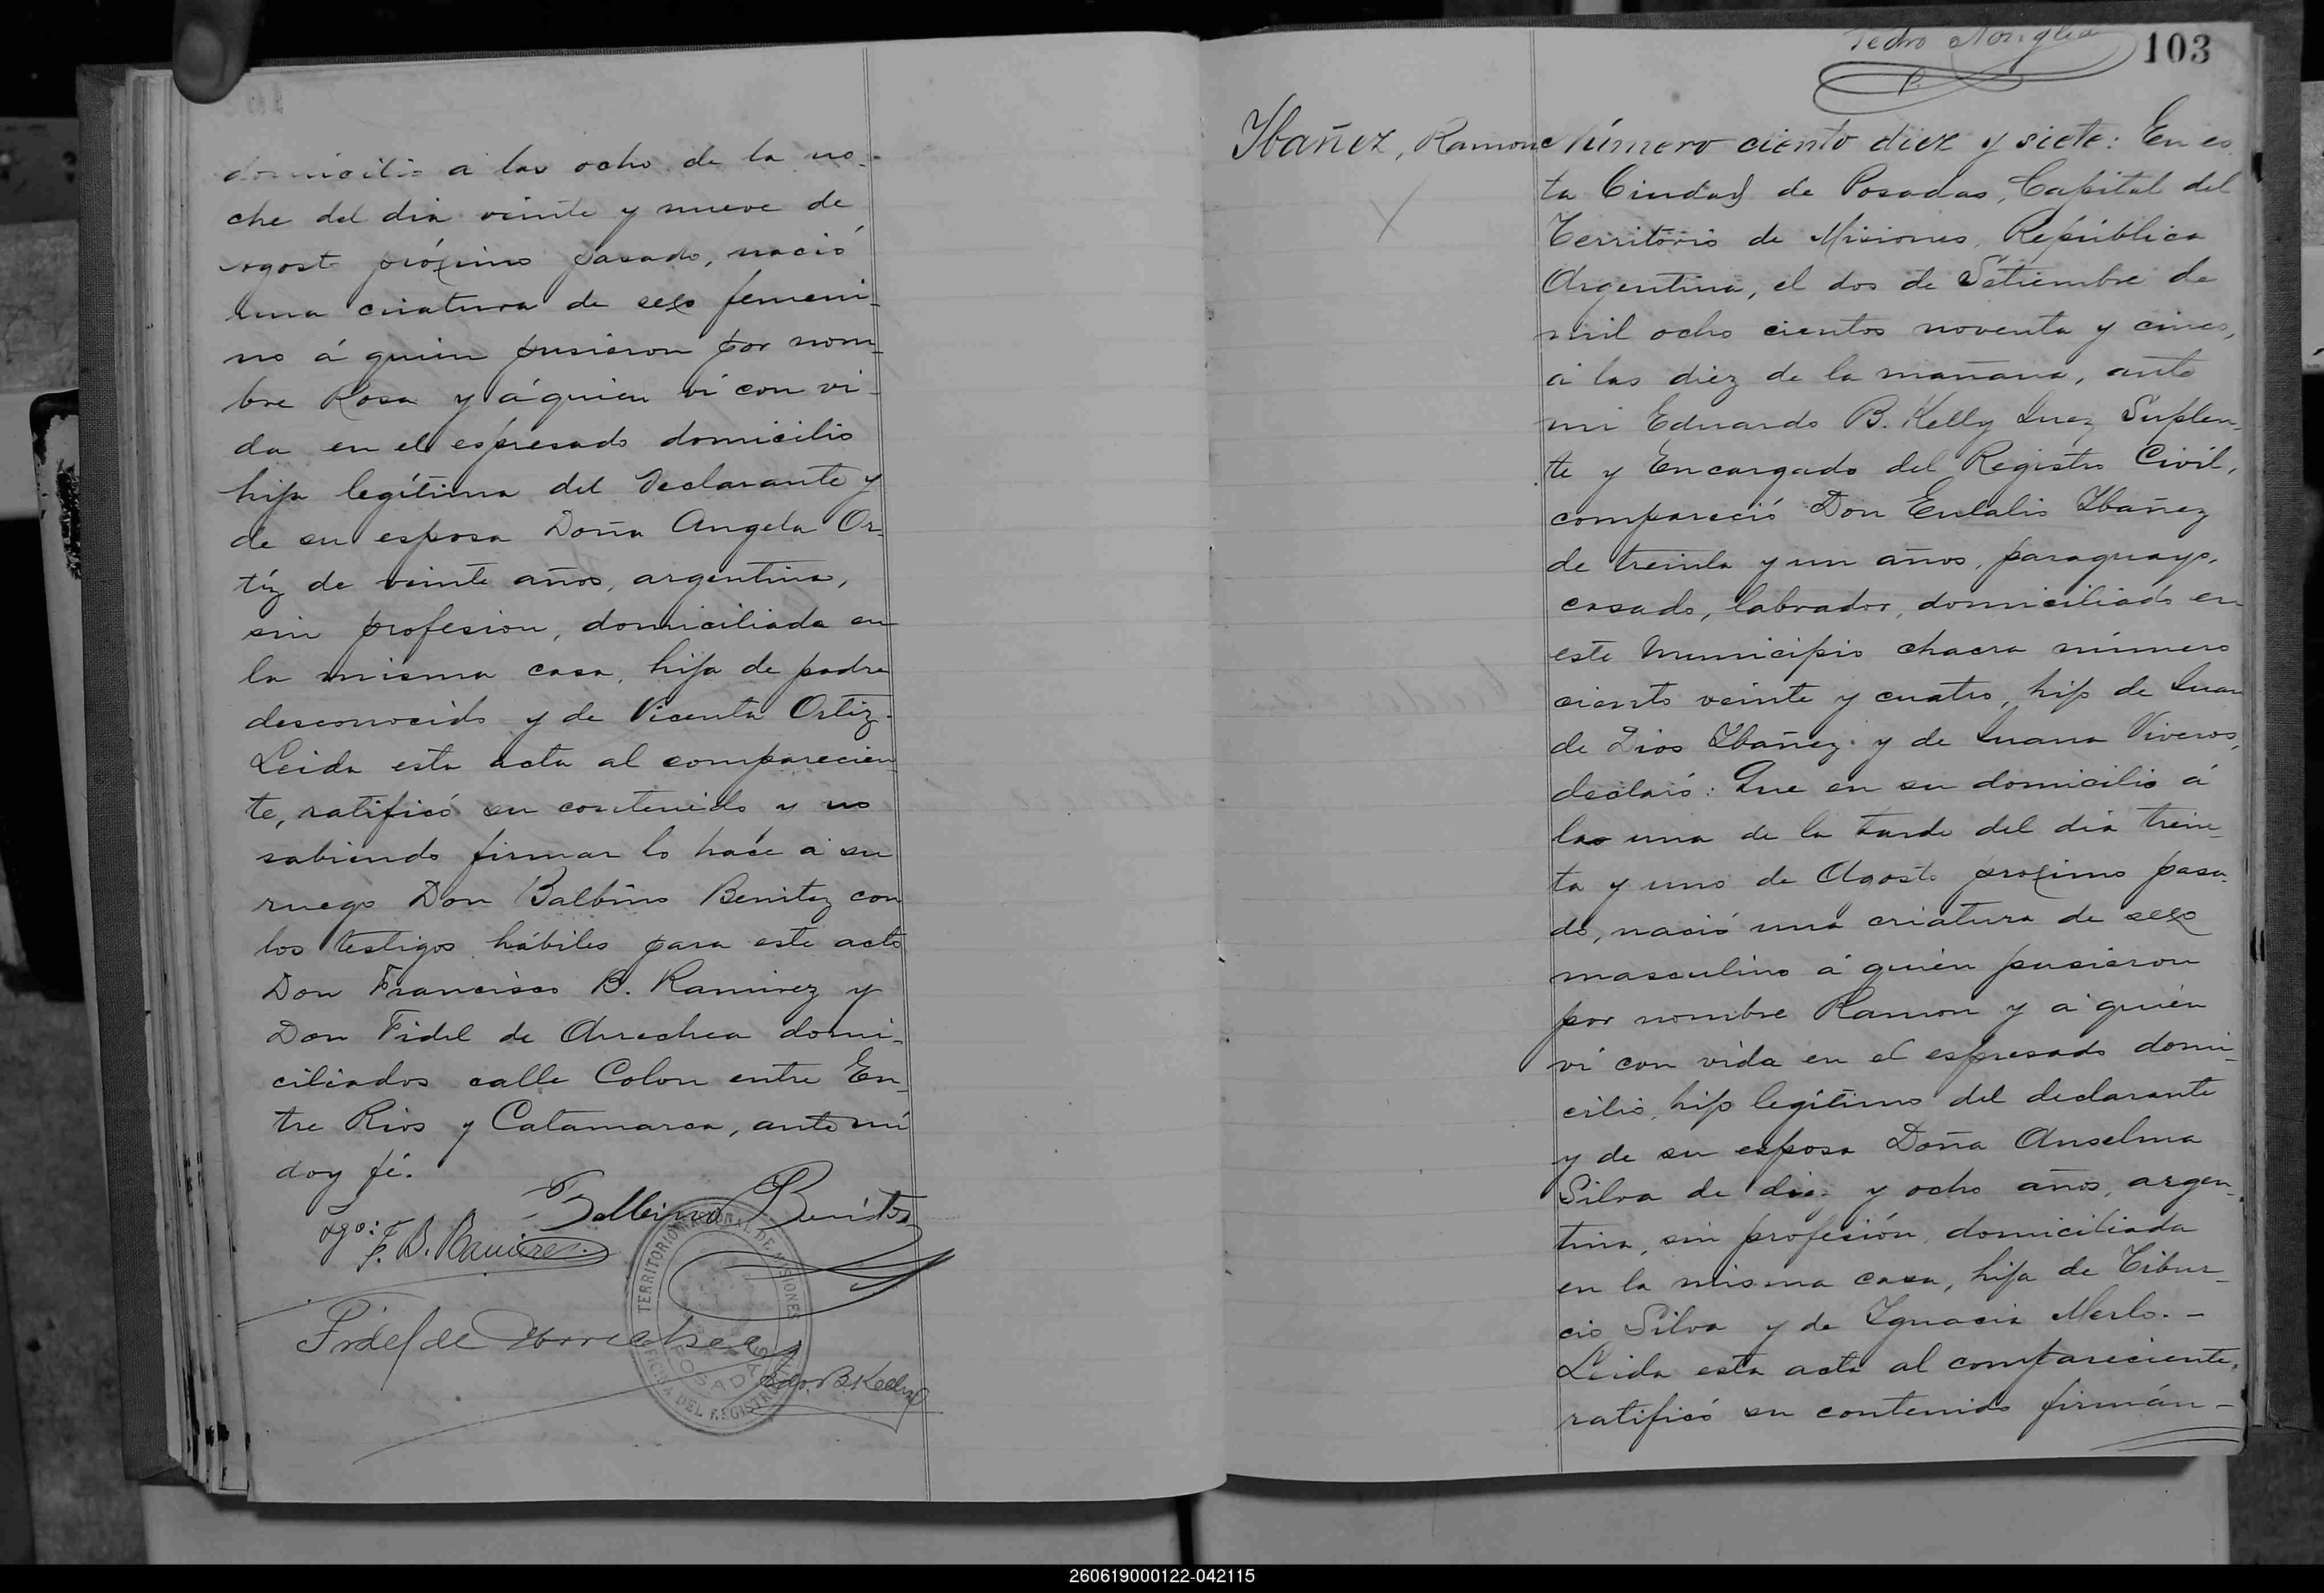 domicilio a las ocho de la no-
che del dia veinte y nueve de
agosto próximo pasado, nació
una criatura de sexo femeni-
no á quien pusieron por nom-
bre Rosa y á quien vi con vi-
da en el espresado domicilio
hija legítima del declarante y
de su esposa Doña Angela Or-
tíz de veinte años, argentina,
sin profesion, domiciliada en
la misma casa, hija de padre
desconocido y de Vicenta Ortiz.
Leida esta acta al comparecien-
te, ratificó su contenido y no
sabiendo firmar lo hace á su
ruego Don Balbino Benitez con
los testigos hábiles para este acto
Don Francisco B. Ramirez y
Don Fidel de Arrechea domi-
ciliados calle Colon entre En-
tre Rios y Catamarca, ante mí
doy fé.
Balbino Benites
tgo: F. B. Ramirez
Fidel de Arrechea
Edo. B. Kelly
TERRITORIO NACIONAL DE MISIONES
POSADAS
OFICINA DEL REGISTRO CIVIL
Pedro
103
Ybañez, Ramon
Número ciento diez y siete: En es
ta Ciudad de Posadas, Capital del
Territorio de Misiones, República
Argentina, el dos de Setiembre de
mil ocho cientos noventa y cinco,
á las diez de la mañana, ante
mi Eduardo B. Kelly Juez Suplen-
te y Encargado del Registro Civil,
compareció Don Eulalio Ybañez
de treinta y un años, paraguayo,
casado, labrador, domiciliado en
este Municipio chacra número
ciento veinte y cuatro, hijo de Juan
de Dios Ybañez y de Juana Viveros,
declaró: Que en su domicilio á
las una de la tarde del dia trein-
ta y uno de Agosto proximo pasa-
do, nació una criatura de sexo
masculino á quien pusieron
por nombre Ramon y á quien
vi con vida en el espresado domi-
cilio, hijo legítimo del declarante
y de su esposa Doña Anselma
Silva de diez y ocho años, argen-
tina, sin profesión, domiciliada
en la misma casa, hija de Tibur-
cio Silva y de Ygnacia Merlo. -
Leida esta acta al compareciente,
ratificó su contenido firmán-
260619000122-042115